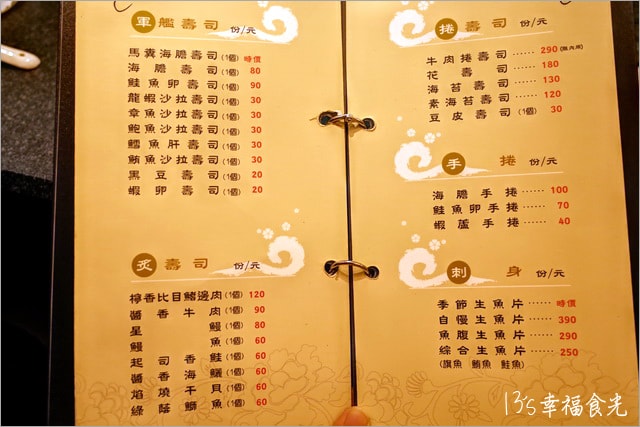 軍艦壽司 份/元
馬糞海膽壽司(1個) 時價
海膽壽司(1個) 80
鮭魚卵壽司(1個) 90
龍蝦沙拉壽司(1個) 30
章魚沙拉壽司(1個) 30
鮑魚沙拉壽司(1個) 30
鱈魚肝壽司(1個) 30
鮪魚沙拉壽司(1個) 30
黑豆壽司(1個) 20
蝦卵壽司(1個) 20
炙壽司 份/元
檸香比目鰭邊肉(1個) 120
醬香牛肉(1個) 90
星鰻(1個) 80
鰻魚(1個) 60
起司香鮭(1個) 60
醬香海鱺(1個) 60
焰燒干貝(1個) 60
綠蔭鰤魚(1個) 60
捲壽司 份/元
牛肉捲壽司 ····· 290
花壽司 ······ 180
海苔壽司 ····· 130
素海苔壽司 ····· 120
豆皮壽司(1個) 30
手捲 份/元
海膽手捲 ······ 100
鮭魚卵手捲 ······ 70
蝦蘆手捲 ······ 40
刺身 份/元
季節生魚片 ······ 時價
自慢生魚片 ······ 390
魚腹生魚片 ······ 290
綜合生魚片 ······ 250
(旗魚 鮪魚 鮭魚)
13's幸福食光